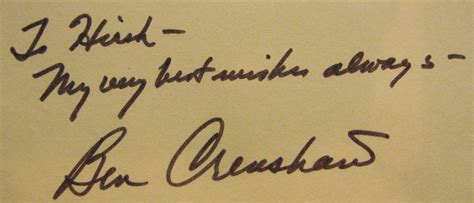 To Hirsh –
My very best wishes always –
Ben Crenshaw